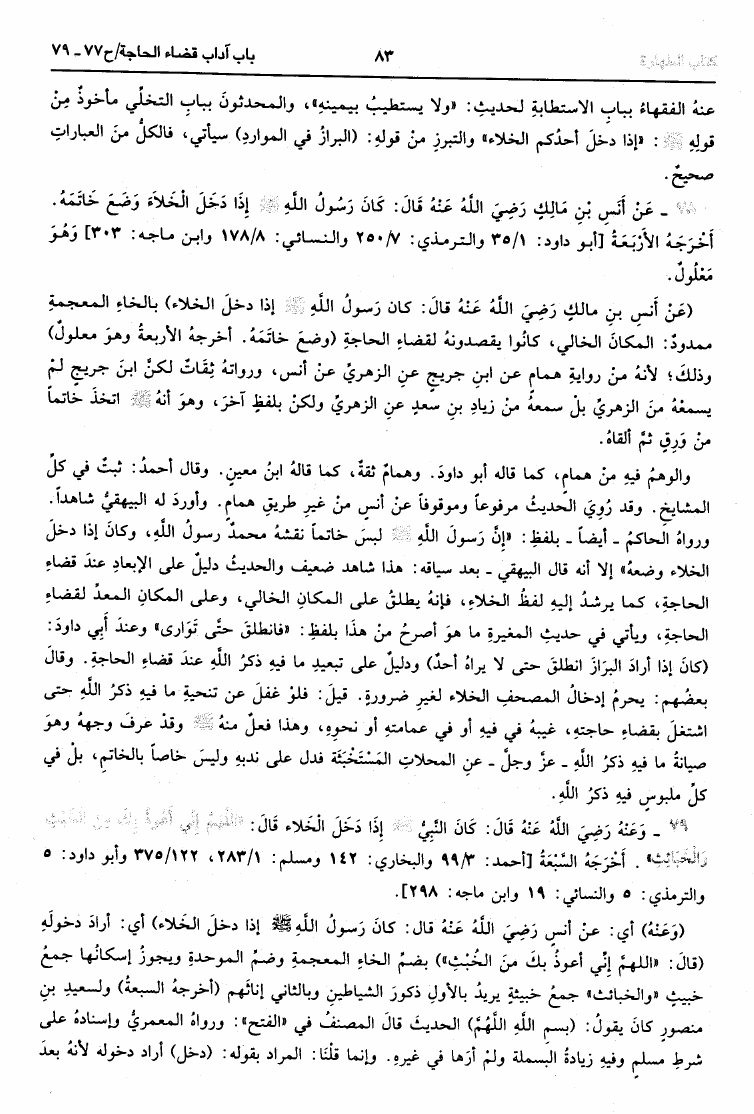 كتاب الطهارة ٨٣ باب آداب قضاء الحاجة/ح٧٧ - ٧٩
عنهُ الفقهاءُ ببابِ الاستطابةِ لحديثِ: «ولا يستطيبُ بيمينهِ»، والمحدثونَ ببابِ التخلّي مأخوذٌ مِنْ
قولِهِ ﷺ: «إذا دخلَ أحدُكم الخلاء» والتبرزِ منْ قولِهِ: (البرازُ في المواردِ) سيأتي، فالكلُّ منَ العباراتِ
صحيحٌ.
٧٨ ـ عَنْ أَنَسِ بْنِ مَالِكٍ رَضِيَ اللَّهُ عَنْهُ قَالَ: كَانَ رَسُولُ اللَّهِ ﷺ إِذَا دَخَلَ الْخَلَاءَ وَضَعَ خَاتَمَهُ.
أَخْرَجَهُ الأَرْبَعَةُ [أبو داود: ٣٥/١ والترمذي: ٢٥٠/٧ والنسائي: ١٧٨/٨ وابن ماجه: ٣٠٣] وَهُوَ
مَعْلُولٌ.
(عَنْ أَنسِ بنِ مالكٍ رَضِيَ اللَّهُ عَنْهُ قالَ: كان رَسولُ اللَّهِ ﷺ إذا دخلَ الخلاء) بالخاءِ المعجمةِ
ممدودٌ: المكانَ الخالي، كانُوا يقصدونهُ لقضاءِ الحاجةِ (وضعَ خاتَمَهُ. أخرجهُ الأربعةُ وهوَ معلولٌ)
وذلكَ؛ لأنهُ منْ روايةِ همامٍ عن ابنِ جريجٍ عنِ الزهريِّ عنْ أنس، ورواتهُ ثِقَاتٌ لكنَّ ابنَ جريجٍ لمْ
يسمعْهُ منَ الزهريِّ بلْ سمعهُ منْ زيادِ بنِ سعدٍ عنِ الزهريِّ ولكنْ بلفظٍ آخرَ، وهوَ أنهُ ﷺ اتخذَ خاتماً
منْ وَرِقٍ ثمَّ ألقاهُ.
والوهمُ فيهِ منْ همامٍ، كما قاله أبو داودَ. وهمامٌ ثقةٌ، كما قالهُ ابنُ معينٍ. وقال أحمدُ: ثبتٌ في كلِّ
المشايخِ. وقد رُويَ الحديثُ مرفوعاً وموقوفاً عنْ أنسٍ منْ غيرِ طريقِ همامٍ. وأوردَ له البيهقيُّ شاهداً.
ورواهُ الحاكمُ ـ أيضاً ـ بلفظِ: «إنَّ رَسولَ اللَّهِ ﷺ لبسَ خاتماً نقشهُ محمدٌ رسولُ اللَّهِ، وكانَ إذا دخلَ
الخلاء وضعهُ» إلا أنه قال البيهقي ـ بعد سياقه: هذا شاهد ضعيف والحديثُ دليلٌ على الإبعادِ عندَ قضاءِ
الحاجةِ، كما يرشدُ إليهِ لفظُ الخلاءِ، فإنهُ يطلقُ على المكانِ الخالي، وعلى المكانِ المعدِّ لقضاءِ
الحاجةِ، ويأتي في حديثِ المغيرةِ ما هوَ أصرحُ منْ هذا بلفظِ: «فانطلقَ حتَّى تَوَارى» وعندَ أبي داودَ:
(كانَ إذا أرادَ البرَازَ انطلقَ حتى لا يراهُ أحدٌ) ودليلٌ على تبعيدِ ما فيهِ ذكرُ اللَّهِ عندَ قضاءِ الحاجةِ. وقالَ
بعضُهم: يحرمُ إدخالُ المصحفِ الخلاء لغيرِ ضرورةٍ. قيلَ: فلوْ غفلَ عن تنحيةِ ما فيهِ ذكرُ اللَّهِ حتى
اشتغلَ بقضاءِ حاجتهِ، غيبهُ في فيهِ أو في عمامتهِ أو نحوهِ، وهذا فعلٌ منهُ ﷺ وقدْ عرفَ وجههُ وهوَ
صيانةُ ما فيهِ ذكرُ اللَّهِ ـ عزَّ وجلَّ ـ عنِ المحلاتِ المَسْتَخْبَثَةِ فدل على ندبهِ وليسَ خاصاً بالخاتمِ، بلْ في
كلِّ ملبوسٍ فيهِ ذكرُ اللَّهِ.
٧٩ ـ وَعَنْهُ رَضِيَ اللَّهُ عَنْهُ قَالَ: كَانَ النَّبِيُّ ﷺ إِذَا دَخَلَ الْخَلَاء قَالَ: «اللَّهُمَّ إِنِّي أَعُوذُ بِكَ مِنَ الْخُبُثِ
وَالْخَبَائِثِ». أَخْرَجَهُ السَّبْعَةُ [أحمد: ٩٩/٣ والبخاري: ١٤٢ ومسلم: ٢٨٣/١، ٣٧٥/١٢٢ وأبو داود: ٥
والترمذي: ٥ والنسائي: ١٩ وابن ماجه: ٢٩٨].
(وَعَنْهُ) أي: عنْ أنسٍ رَضِيَ اللَّهُ عَنْهُ قال: كانَ رَسُولُ اللَّهِ ﷺ إذا دخلَ الخلاء) أي: أرادَ دخولَهِ
(قالَ: «اللهمَّ إنِّي أعوذُ بكَ منَ الخُبُثِ») بضمِّ الخاءِ المعجمةِ وضمِّ الموحدةِ ويجوزُ إسكانُها جمعُ
خبيثٍ «والخبائثِ» جمعُ خبيثةٍ يريدُ بالأولِ ذكورَ الشياطينِ وبالثاني إناثَهم (أخرجهُ السبعةُ) ولسعيدِ بنِ
منصورٍ كانَ يقولُ: (بسمِ اللَّهِ اللَّهُمَّ) الحديثَ قالَ المصنفُ في «الفتحِ»: ورواهُ المعمريُّ وإسنادهُ على
شرطِ مسلمٍ وفيهِ زيادةُ البسملة ولمْ أرَها في غيرِهِ. وإنما قلْنَا: المراد بقوله: (دخل) أراد دخوله لأنهُ بعدَ